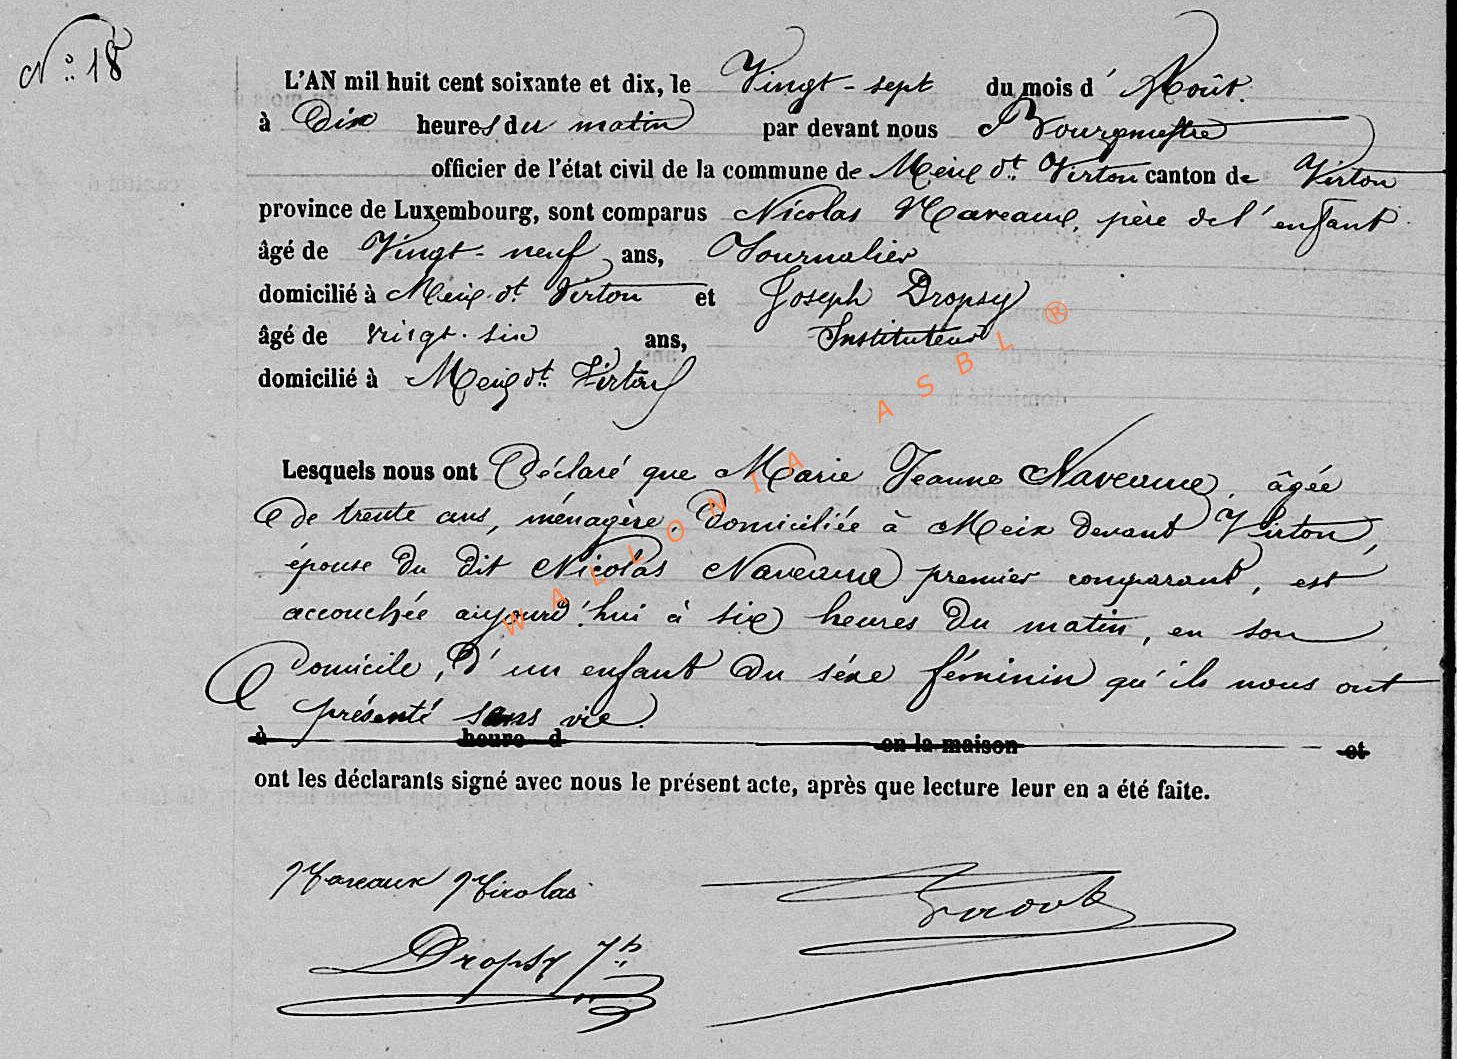 N° 18
L'AN mil huit cent soixante et dix, le Vingt-sept du mois d'Août.
à Dix heures du matin par devant nous Bourgmestre
officier de l'état civil de la commune de Meix dt Virton canton de Virton
province de Luxembourg, sont comparus Nicolas Naveaux, père de l'enfant
âgé de Vingt-neuf ans, Journalier
domicilié à Meix dt Virton et Joseph Dropsy
âgé de vingt-six ans, Instituteur
domicilié à Meix dt Virton
Lesquels nous ont Déclaré que Marie Jeanne Naveaux, âgée
de trente ans, ménagère, domiciliée à Meix devant Virton,
épouse du dit Nicolas Naveaux premier comparant, est
accouchée aujourd'hui à six heures du matin, en son
domicile, d'un enfant du séxe féminin qu'ils nous ont
présenté sans vie.
à heure d en la maison et
ont les déclarants signé avec nous le présent acte, après que lecture leur en a été faite.
Naveaux Nicolas
Dropsy Jh
WALLONIA ASBL ®